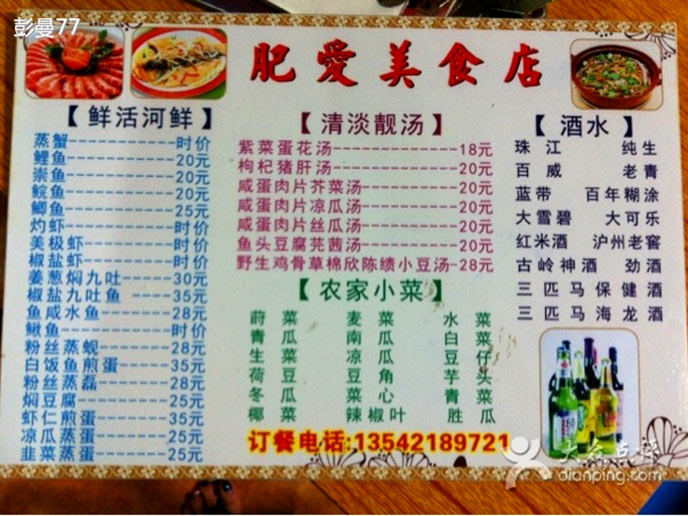 彭曼77
肥爱美食店
【鲜活河鲜】
蒸蟹------时价
鲤鱼------20元
崇鱼------20元
鲩鱼------20元
鲫鱼------25元
灼虾------时价
美极虾------时价
椒盐虾------时价
姜葱焖九吐------30元
椒盐九吐鱼------35元
鱼咸水鱼------28元
鳅鱼------时价
粉丝蒸蚬------28元
白饭鱼煎蛋------35元
粉丝蒸磊------28元
焖豆腐------25元
虾仁煎蛋------35元
凉瓜蒸蛋------25元
韭菜蒸蛋------25元
【清淡靓汤】
紫菜蛋花汤------18元
枸杞猪肝汤------20元
咸蛋肉片芥菜汤------20元
咸蛋肉片凉瓜汤------20元
咸蛋肉片丝瓜汤------20元
鱼头豆腐芫茜汤------20元
野生鸡骨草棉欣陈绩小豆汤--28元
【农家小菜】
莳菜 麦菜 水菜
青瓜 南瓜 白菜
生菜 凉瓜 豆仔
荷豆 豆角 芋头
冬瓜 菜心 青菜
椰菜 辣椒叶 胜瓜
订餐电话:13542189721
【酒水】
珠江 纯生
百威 老青
蓝带 百年糊涂
大雪碧 大可乐
红米酒 泸州老窖
古岭神酒 劲酒
三匹马保健酒
三匹马海龙酒
大众点评
dianping.com